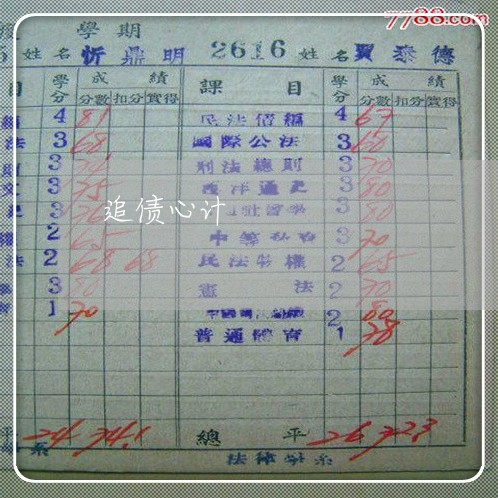 7788.com
學期
姓名 忻鼎明 2616 姓名 賈泰德
目 學分 成績 課目 學分 成績
分數 扣分 實得 分數 扣分 實得
4 81 民法債編 4 67
法 3 68 國際公法 3 60
3 刑法總則 3 70
3 75 西洋通史 3 80
3 3 80
追债心计
2 65 3 70
法 2 68 68 民法物權 2 65
3 80 憲法 2 70
1 70 2 80
普通體育 1 78
平 24 74.1 總平 26 72.3
系 法律學系